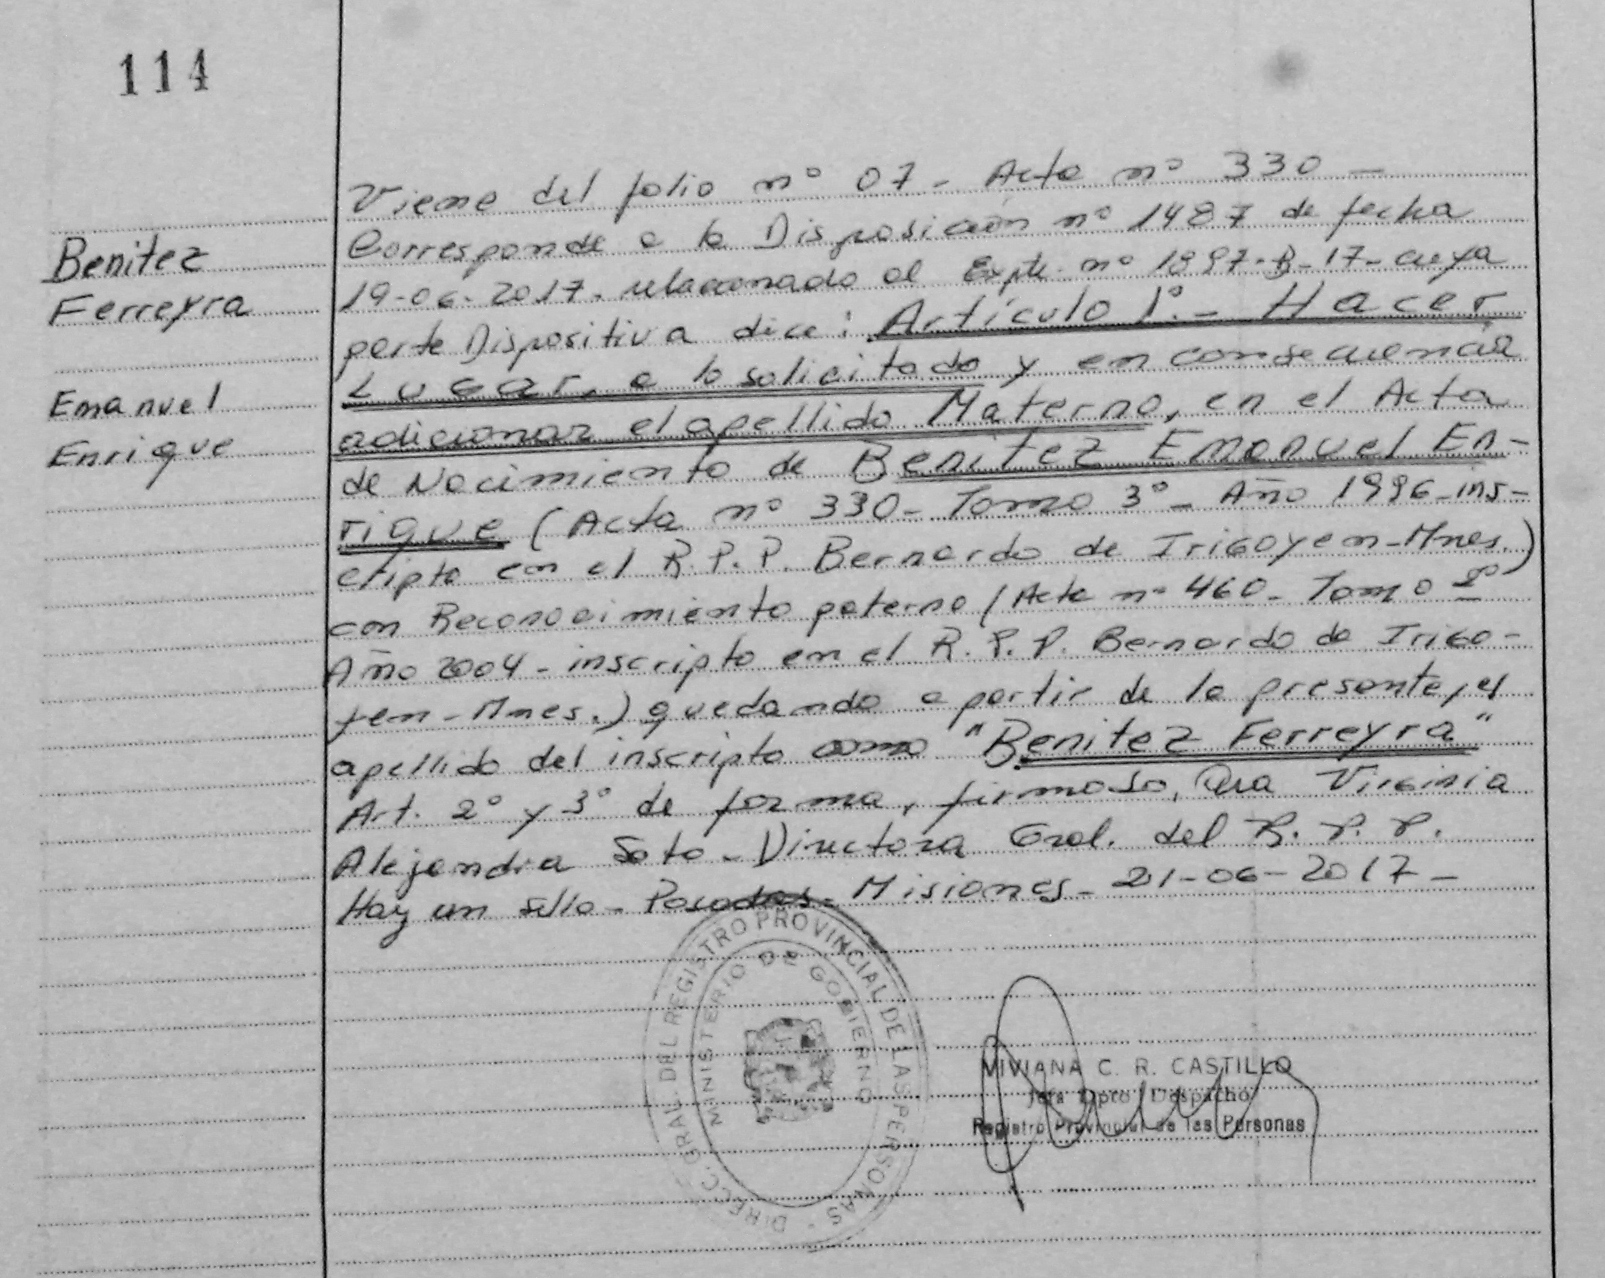 114
Benitez
Ferreyra
Emanuel
Enrique
Viene del folio nº 07 - Acta nº 330 -
Corresponde a la Disposición nº 1487 de fecha
19-06-2017. relacionado al Expte. nº 1897-B-17- cuya
parte Dispositiva dice: Artículo 1º.- Hacer
Lugar, a lo solicitado y en consecuencia
adicionar el apellido Materno, en el Acta
de Nacimiento de Benitez Emanuel En-
rique (Acta nº 330- Tomo 3º- Año 1996-ins-
cripto en el R.P.P. Bernardo de Irigoyen-Mnes.)
con Reconocimiento paterno (Acta nº 460- Tomo 2º
Año 2004- inscripto en el R.P.P. Bernardo de Irigo-
yen-Mnes.) quedando a partir de la presente, el
apellido del inscripto como "Benitez Ferreyra"
Art. 2º y 3º de forma, firmado, Dra Virginia
Alejandra Soto- Directora Gral. del R.P.P.
Hay un sello- Posadas- Misiones- 21-06-2017-
DIRECC. GRAL. DEL REGISTRO PROVINCIAL DE LAS PERSONAS -
MINISTERIO DE GOBIERNO
VIVIANA C. R. CASTILLO
Jefa Dpto Despacho
Registro Provincial de las Personas